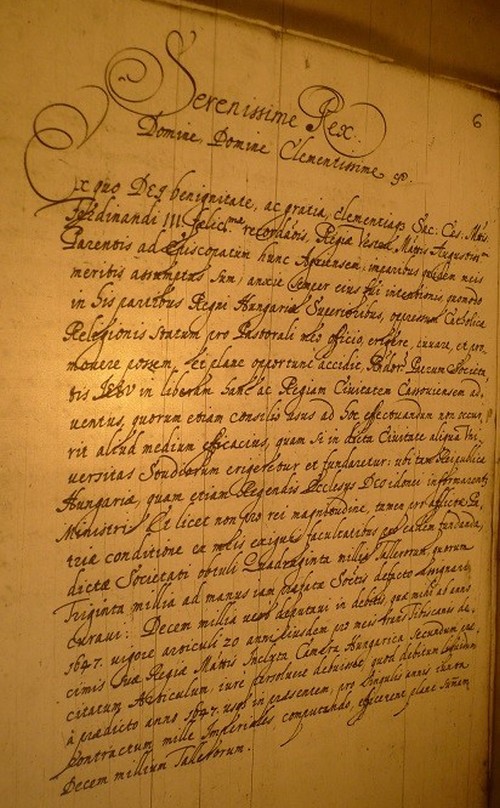 6
Serenissime Rex
Domine, Domine Clementissime
Ex quo DEI benignitate, ac gratia, clementiaq3 Sac: Caes: Mttis
Ferdinandi III felicis.mae recordatis, Regiae Vestrae Mattis Augustis.mi
Parentis ad Episcopatum hunc Agriensem, imparibus quidem meis
meritis assumptus sum; anxie semper eius fui intentionis, quomodo
in his partibus Regni Hungariae Superioribus, oppressum Catholicae
Religionis statum pro Pastorali meo officio, erigere, iuuare, et pro,
mouere possem. Et plane opportune accidit, Pndorū Patrum Societa,
tis IESV in liberam hanc ac Regiam Ciuitatem Cassouiensem ad,
uentus, quorum etiam consilio usus ad hoc effectuandum non occur,
rit aliud medium efficacius, quam si in dicta Ciuitate aliqua Vni,
uersitas Studiorum erigeretur et fundaretur: ubi tam Reipublicae
Hungariae, quam etiam Regendis Ecclesijs DEO idonei informarentr
Ministri. Et licet non pro rei magnitudine, tamen pro afflictae Pa,
triae conditione ex meis exiguis facultatibus pro eadem fundanda,
dictae Societati obtuli Quadraginta millia Tallerorum, quorum
Triginta millia ad manus iam praefatae Soctis defacto assignari
curaui: Decem millia uero deputaui in debitis, quae mihi ab anno
1647. uigore articuli 20 anni eiusdem pro meis trans Tibiscanis de,
cimis Suae Regiae Mattis Inclyta Camera Hungarica Secundum prae,
citatum Articulum, iure persoluere debuisset, quod debitum iuxta
à praedicto anno 1647. usq3 in praesentem, pro singulis annis iuxta
contractum mille Imperiales computando, efficerent plane Summam
Decem millium Tallerorum.